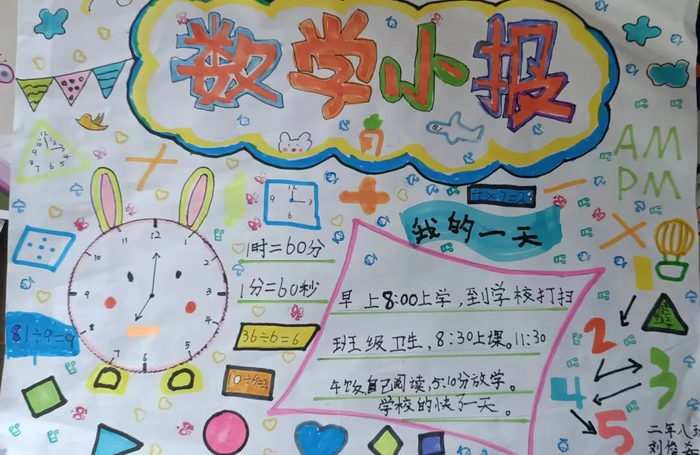 数学小报
AM
PM
我的一天
1时=60分
1分=60秒
早上8:00上学,到学校打扫
班级卫生,8:30上课。11:30
午饭自己阅读,5:10分放学。
学校的快了一天。
81÷9=9
36÷6=6
12
1
2
3
4
5
6
7
8
9
10
11
2
3
4
5
二年八班